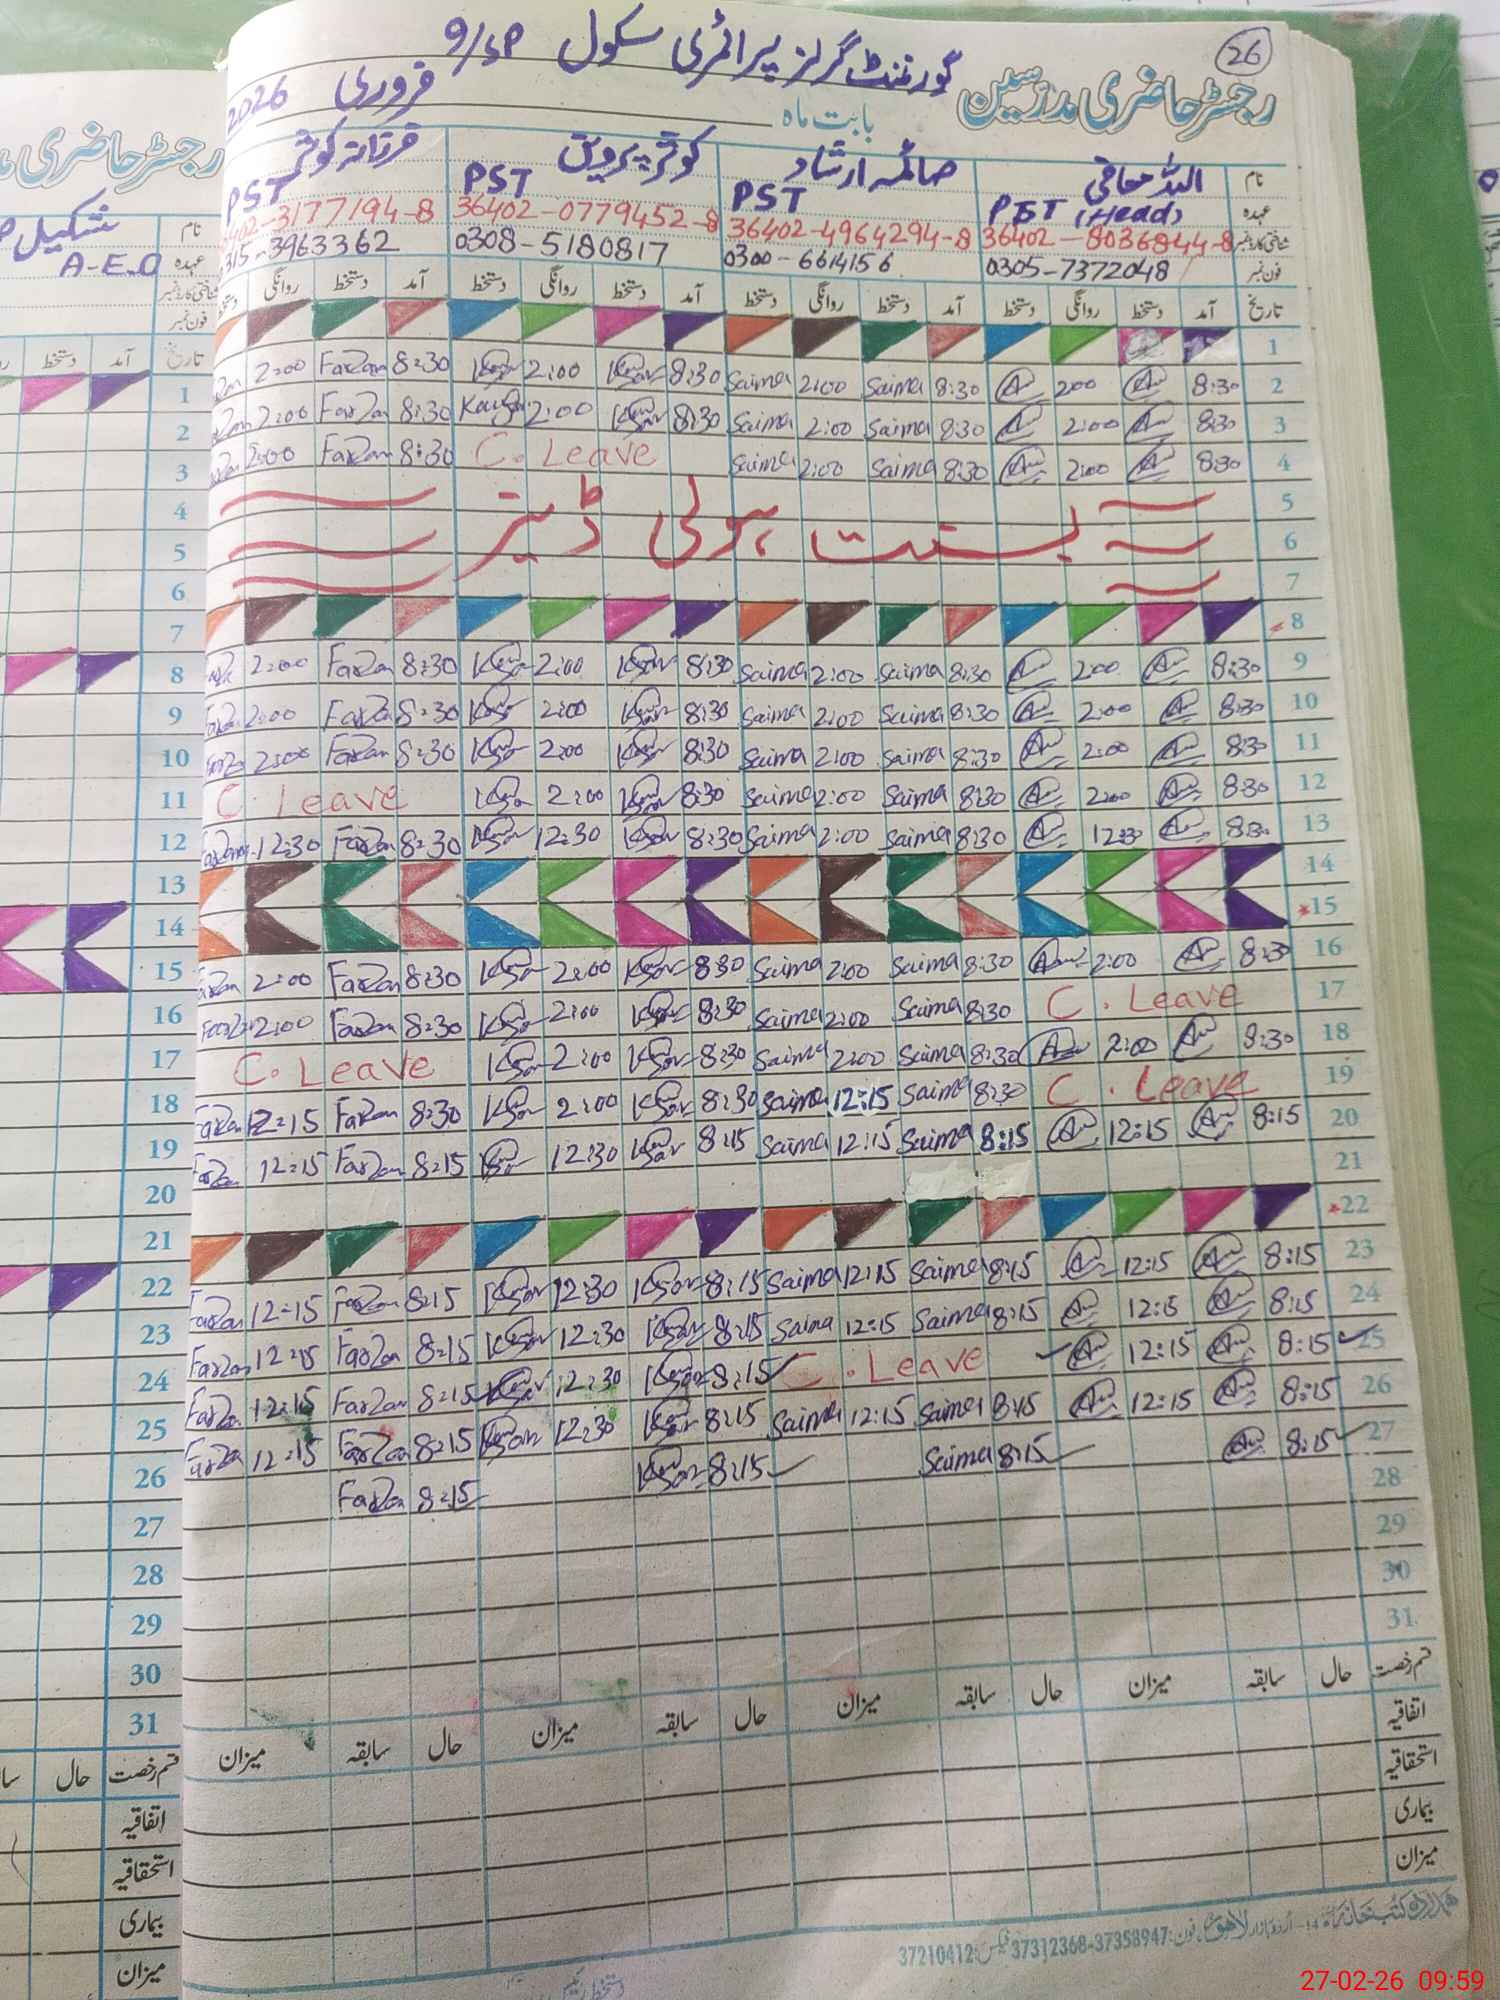 26
گورنمنٹ گرلز پرائمری سکول 9/SP
رجسٹر حاضری مدرسین
بابت ماہ فروری 2026
نام اللہ معافی صائمہ ارشاد کوثر پروین فرزانہ کوثر
عہدہ PST (Head) PST PST PST
شناختی کارڈ نمبر 36402-8036844-8 36402-4964294-8 36402-0779452-8 402-3177194-8
فون نمبر 0305-7372048 0300-6614156 0308-5180817 0315-3963362
تاریخ آمد دستخط روانگی دستخط آمد دستخط روانگی دستخط آمد دستخط روانگی دستخط آمد دستخط روانگی دستخط
1
2 8:30 200 8:30 Saima 2:00 Saima 8:30 2:00 8:30 Farzan 2:00
3 8:30 2:00 8:30 Saima 2:00 Saima 8:30 2:00 8:30 Farzan 2:00
4 8:30 2:00 8:30 Saima 2:00 Saima C. Leave 8:30 Farzan 2:00
5
6 بسنت ہولی ڈیز
7
8
9 8:30 2:00 8:30 Saima 2:00 Saima 8:30 2:00 8:30 Farzan 2:00
10 8:30 2:00 8:30 Saima 2:00 Saima 8:30 2:00 8:30 Farzan 2:00
11 8:30 2:00 8:30 Saima 2:00 Saima 8:30 2:00 8:30 Farzan 2:00
12 8:30 2:00 8:30 Saima 2:00 Saima 8:30 2:00 C. Leave
13 8:30 12:30 8:30 Saima 2:00 Saima 8:30 12:30 8:30 Farzan 12:30
14
15
16 8:30 2:00 8:30 Saima 2:00 Saima 8:30 2:00 8:30 Farzan 2:00
17 C. Leave 8:30 Saima 2:00 Saima 8:30 2:00 8:30 Farzan 2:00
18 8:30 2:00 8:30 Saima 2:00 Saima 8:30 2:00 C. Leave
19 C. Leave 8:30 Saima 12:15 Saima 8:30 2:00 8:30 Farzan 12:15
20 8:15 12:15 8:15 Saima 12:15 Saima 8:15 12:30 8:15 Farzan 12:15
21
22
23 8:15 12:15 8:15 Saima 12:15 Saima 8:15 12:30 8:15 Farzan 12:15
24 8:15 12:15 8:15 Saima 12:15 Saima 8:15 12:30 8:15 Farzan 12:15
25 8:15 12:15 C. Leave 8:15 12:30 8:15 Farzan 12:15
26 8:15 12:15 8:15 Saima 12:15 Saima 8:15 12:30 8:15 Farzan 12:15
27 8:15 8:15 Saima 8:15 8:15 Farzan
28
29
30
31
قسم رخصت حال سابقہ میزان حال سابقہ میزان حال سابقہ میزان حال سابقہ میزان
اتفاقیہ
استحقاقیہ
بیماری
میزان
ہمدرد کتب خانہ اردو بازار لاہور، فون: 37358947-37312368 فیکس: 37210412
رجسٹر حاضری
نام شکیل
عہدہ A-E.O
شناختی کارڈ نمبر
فون نمبر
تاریخ آمد دستخط
1
2
3
4
5
6
7
8
9
10
11
12
13
14
15
16
17
18
19
20
21
22
23
24
25
26
27
28
29
30
31
قسم رخصت حال
اتفاقیہ
استحقاقیہ
بیماری
میزان
27-02-26 09:59